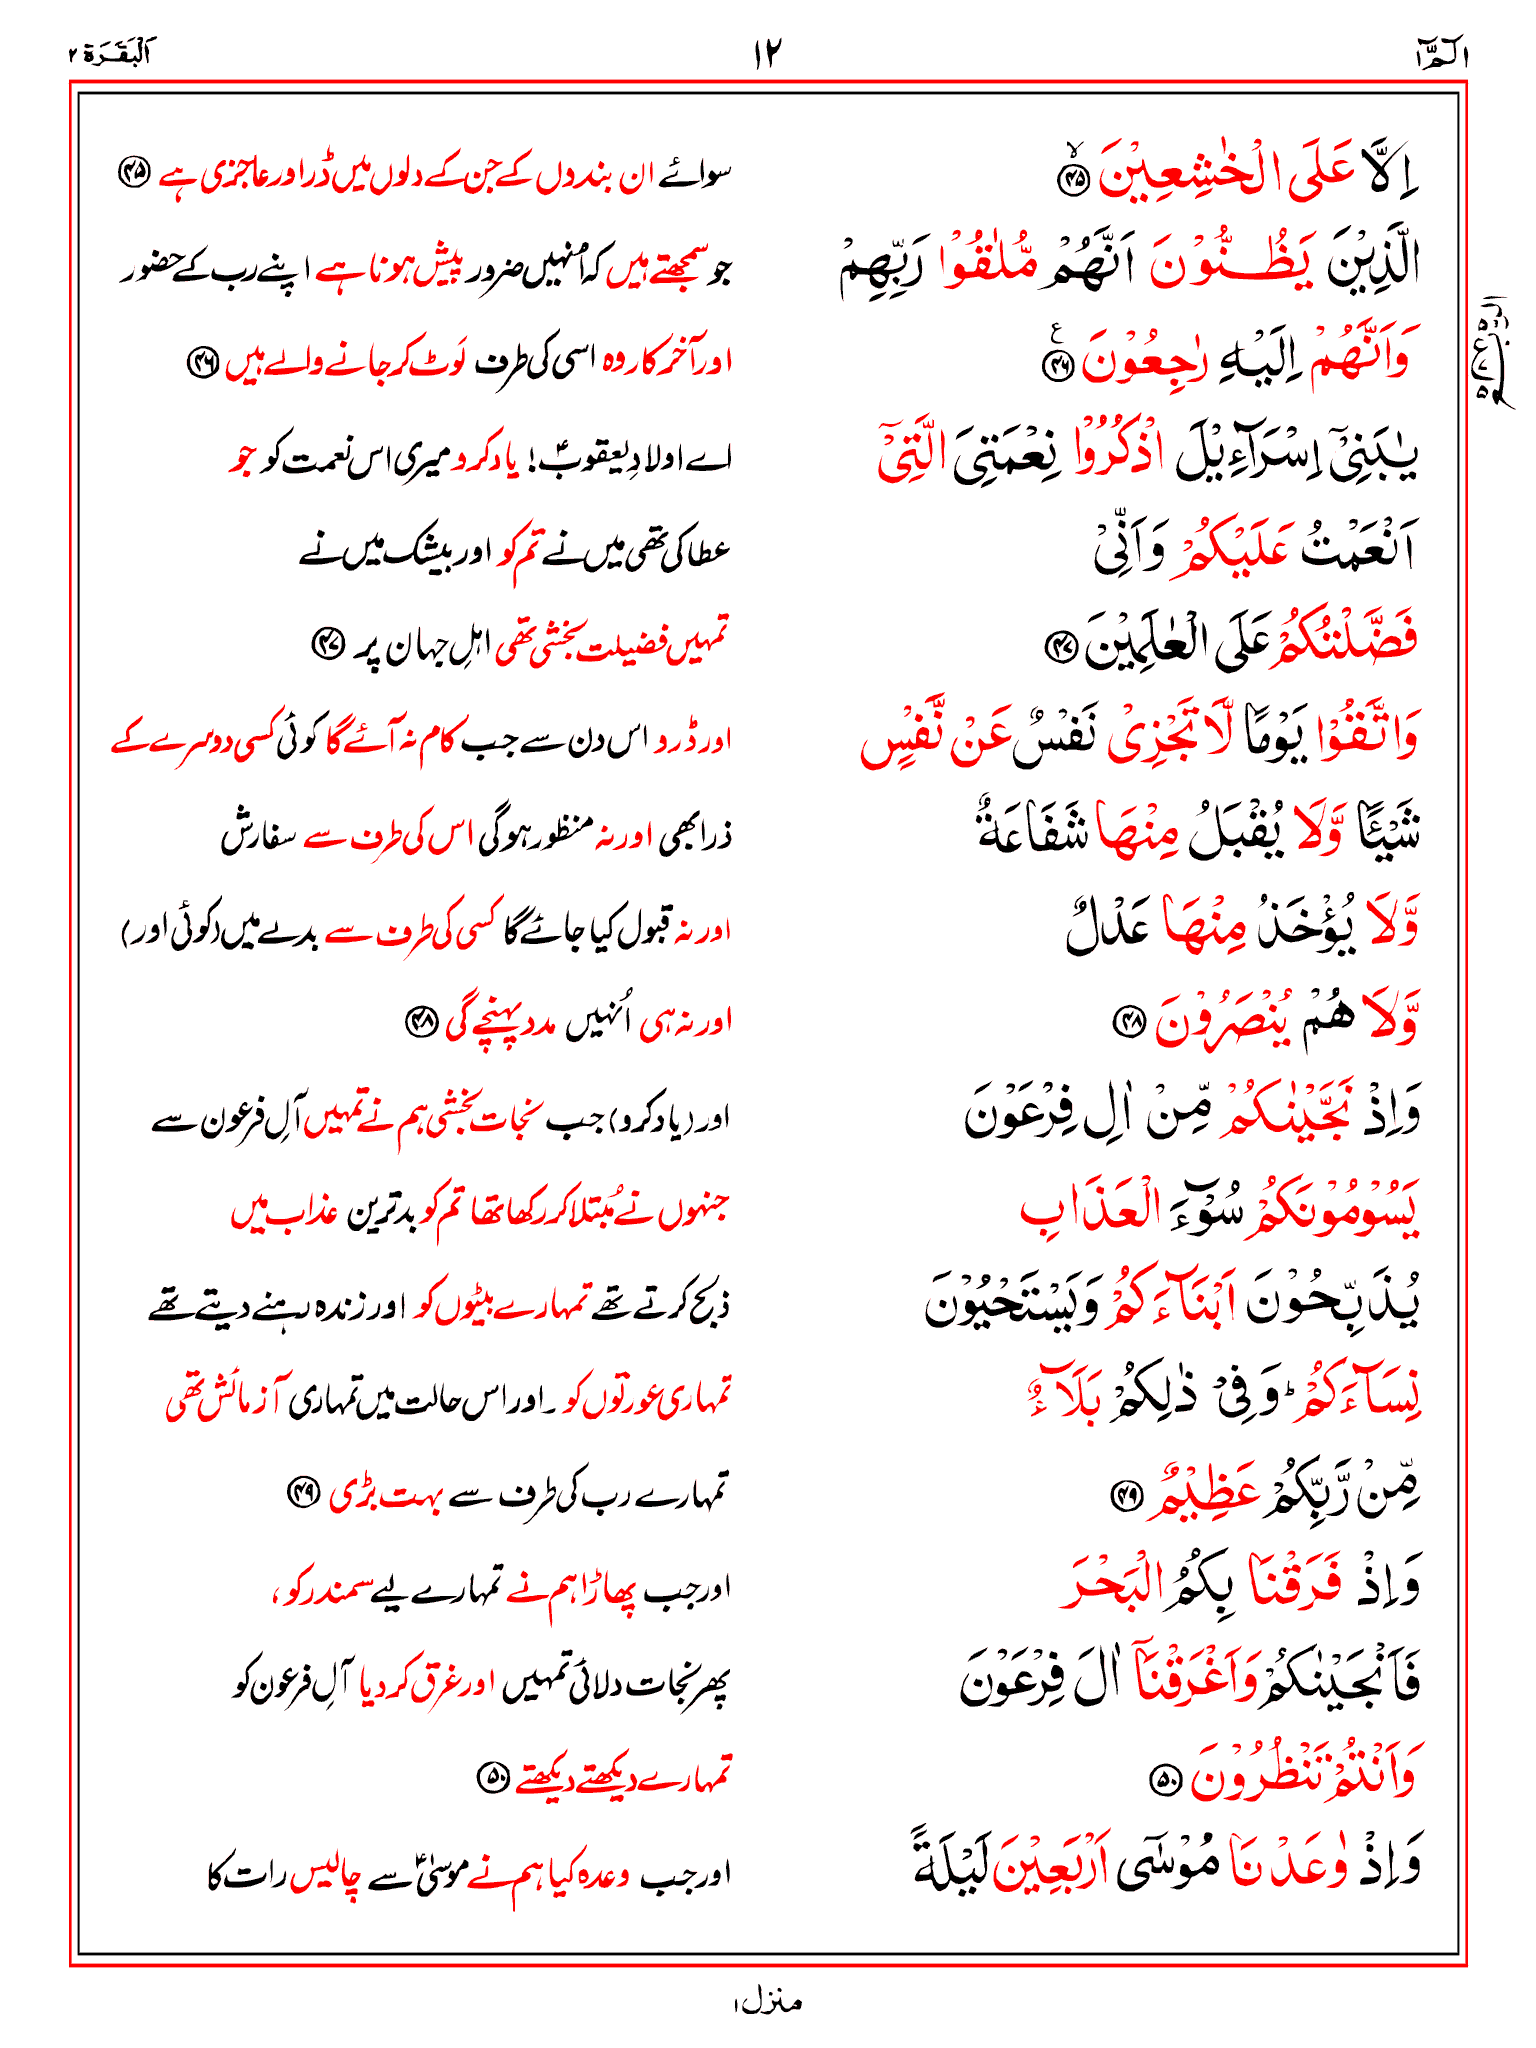 الٓمّٓ ۱
۱۲
اَلْبَقَرَة ۲
اِلَّا عَلَى الْخٰشِعِيْنَ ۙ﴿۴۵﴾ سوائے ان بندوں کے جن کے دلوں میں ڈر اور عاجزی ہے ﴿۴۵﴾
الَّذِيْنَ يَظُنُّوْنَ اَنَّهُمْ مُّلٰقُوْا رَبِّهِمْ جو سمجھتے ہیں کہ اُنہیں ضرور پیش ہونا ہے اپنے رب کے حضور
وَاَنَّهُمْ اِلَيْهِ رٰجِعُوْنَ ﴿۴۶﴾ ع اور آخر کار وہ اسی کی طرف لَوٹ کر جانے والے ہیں ﴿۴۶﴾
يٰبَنِيْٓ اِسْرَآءِيْلَ اذْكُرُوْا نِعْمَتِيَ الَّتِيْٓ اے اولادِ یعقوبؑ! یاد کرو میری اس نعمت کو جو
اَنْعَمْتُ عَلَيْكُمْ وَاَنِّيْ عطا کی تھی میں نے تم کو اور بیشک میں نے
فَضَّلْتُكُمْ عَلَى الْعٰلَمِيْنَ ﴿۴۷﴾ تمہیں فضیلت بخشی تھی اہلِ جہان پر ﴿۴۷﴾
وَاتَّقُوْا يَوْمًا لَّا تَجْزِيْ نَفْسٌ عَنْ نَّفْسٍ اور ڈرو اس دن سے جب کام نہ آئے گا کوئی کسی دوسرے کے
شَيْـًٔا وَّلَا يُقْبَلُ مِنْهَا شَفَاعَةٌ ذرا بھی اور نہ منظور ہوگی اس کی طرف سے سفارش
وَّلَا يُؤْخَذُ مِنْهَا عَدْلٌ اور نہ قبول کیا جائے گا کسی کی طرف سے بدلے میں (کوئی اور)
وَّلَا هُمْ يُنْصَرُوْنَ ﴿۴۸﴾ اور نہ ہی اُنہیں مدد پہنچے گی ﴿۴۸﴾
وَاِذْ نَجَّيْنٰكُمْ مِّنْ اٰلِ فِرْعَوْنَ اور (یاد کرو) جب نجات بخشی ہم نے تمہیں آلِ فرعون سے
يَسُوْمُوْنَكُمْ سُوْٓءَ الْعَذَابِ جنہوں نے مُبتلا کر رکھا تھا تم کو بدترین عذاب میں
يُذَبِّحُوْنَ اَبْنَآءَكُمْ وَيَسْتَحْيُوْنَ ذبح کرتے تھے تمہارے بیٹوں کو اور زندہ رہنے دیتے تھے
نِسَآءَكُمْ ؕ وَفِيْ ذٰلِكُمْ بَلَآءٌ تمہاری عورتوں کو ۔ اور اس حالت میں تمہاری آزمائش تھی
مِّنْ رَّبِّكُمْ عَظِيْمٌ ﴿۴۹﴾ تمہارے رب کی طرف سے بہت بڑی ﴿۴۹﴾
وَاِذْ فَرَقْنَا بِكُمُ الْبَحْرَ اور جب پھاڑا ہم نے تمہارے لیے سمندر کو،
فَاَنْجَيْنٰكُمْ وَاَغْرَقْنَآ اٰلَ فِرْعَوْنَ پھر نجات دلائی تمہیں اور غرق کر دیا آلِ فرعون کو
وَاَنْتُمْ تَنْظُرُوْنَ ﴿۵۰﴾ تمہارے دیکھتے دیکھتے ﴿۵۰﴾
وَاِذْ وٰعَدْنَا مُوْسٰٓى اَرْبَعِيْنَ لَيْلَةً اور جب وعدہ کیا ہم نے موسٰیؑ سے چالیس رات کا
منزل ۱